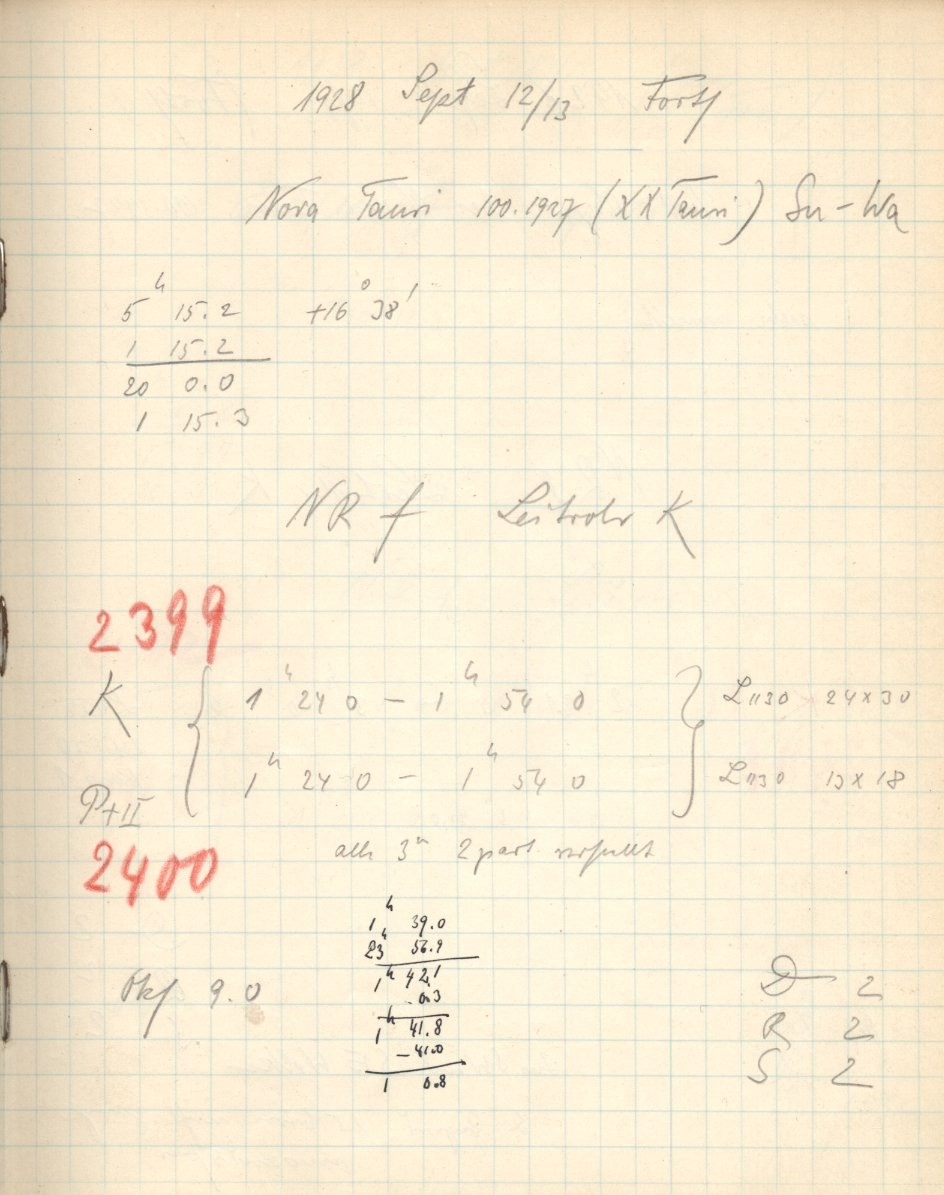 1928 Sept 12/13 Forts
Nova Tauri 100.1927 (XX Tauri) Sn-Wa
5ʰ 15.2 +16° 38'
1 15.2
20 0.0
1 15.3
NR f Leitrohr K
2399
K { 1ʰ 24 0 – 1ʰ 54 0 } L1130 24x30
P+II 1ʰ 24 0 – 1ʰ 54 0 L1130 13x18
2400
alle 3ᵐ 2 part verstellt
1ʰ 39.0
23ʰ 56.9
1ʰ 42.1
0.3
Okf 9.0 1ʰ 41.8
–41.0
1 0.8
D 2
R 2
S 2